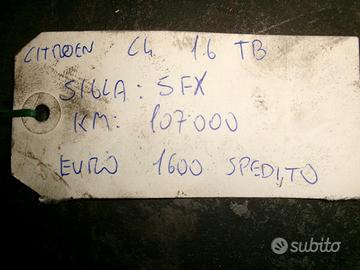 CITROEN C4 1.6 TB
SIGLA: 5FX
KM: 107000
EURO 1600 SPEDITO
subito